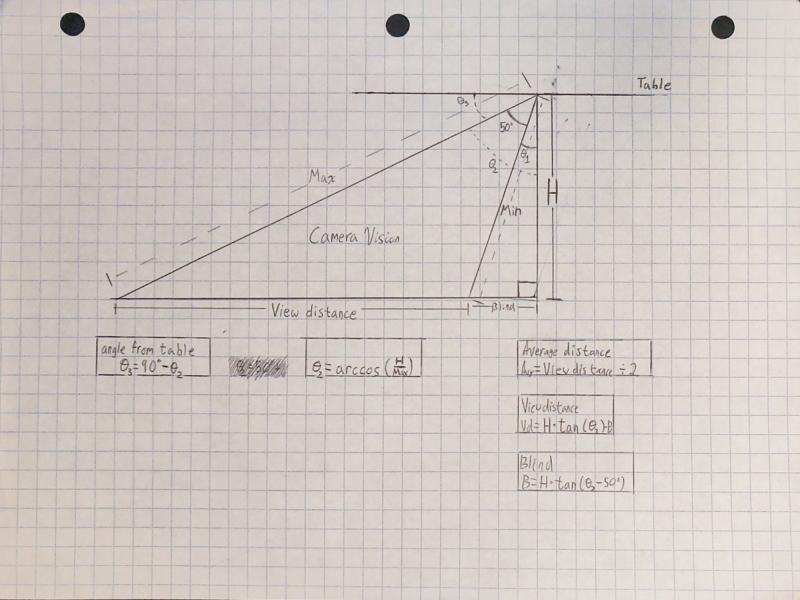 Table
θ₃
50°
θ₁
θ₂
Max
H
Min
Camera Vision
Blind
View distance
angle from table
θ₃=90°-θ₂
θ₂=arccos(H/Max)
Average distance
Av=View distance÷2
View distance
Vd=H·tan(θ₂)-B
Blind
B=H·tan(θ₂-50°)